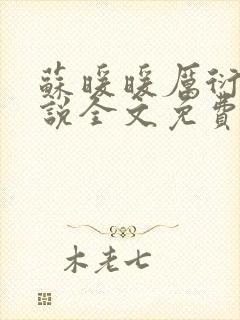 蘇暖暖厲衍
說全文免費
木老七